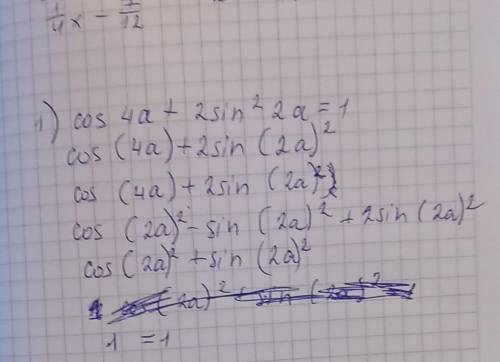 1/4 x - 7/12
1) cos 4a + 2sin² 2a = 1
cos (4a) + 2sin (2a)²
cos (4a) + 2sin (2a)²
cos (2a)² - sin (2a)² + 2sin (2a)²
cos (2a)² + sin (2a)²
1 = 1